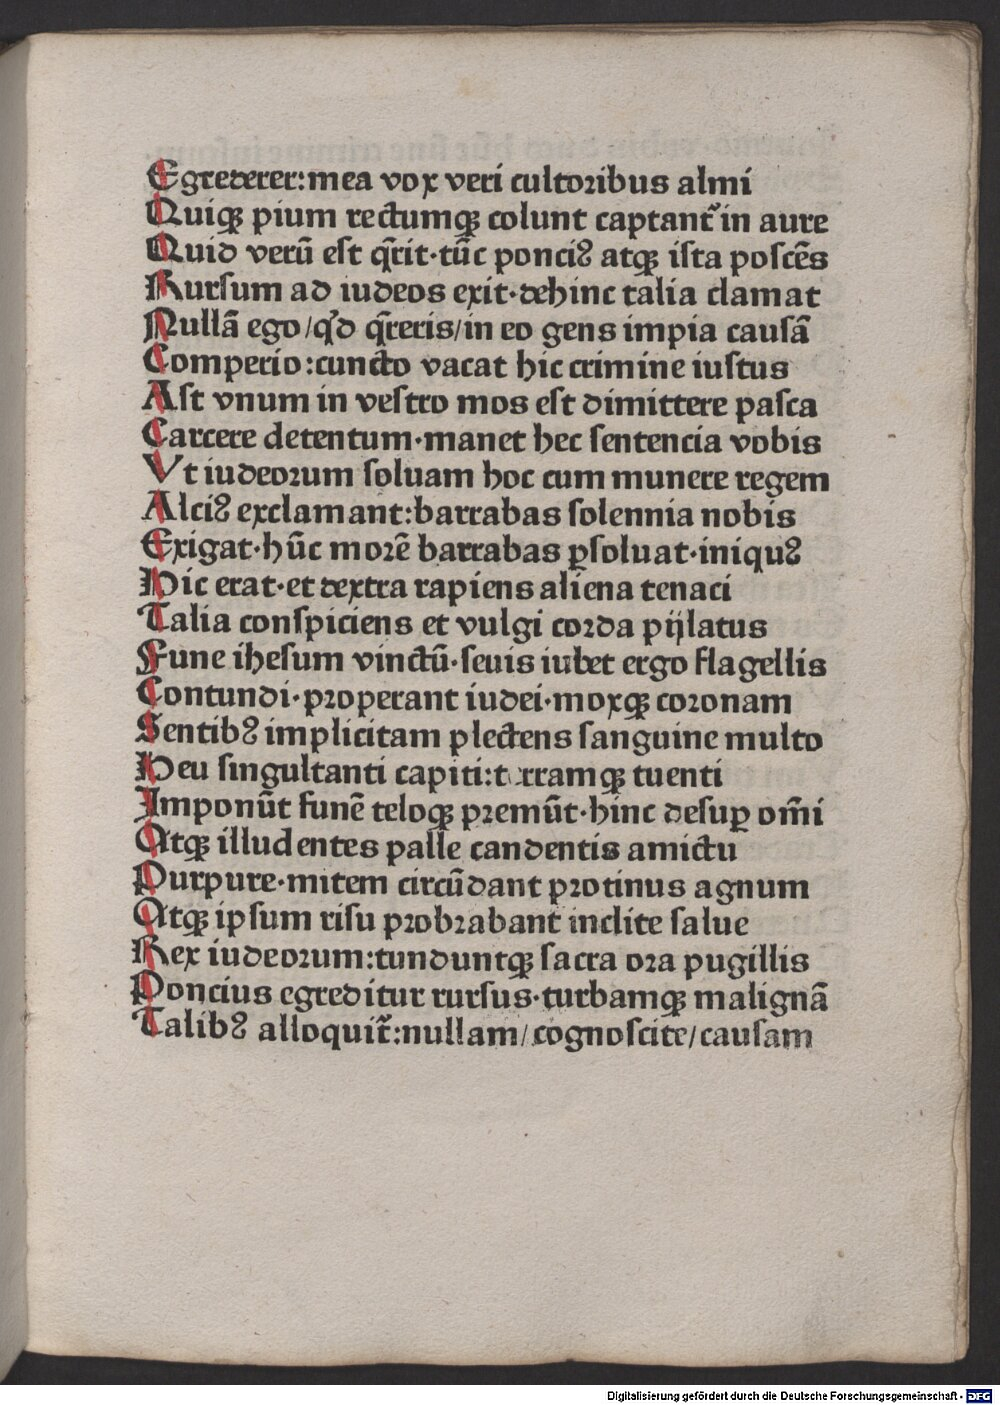 Egrederer:mea vox veri cultoribus almi
Quiqꝫ pium rectumqꝫ colunt captant᷑ in aure
Quid verū est q̄rit·tūc ponciꝰ atqꝫ ista poscēs
Rursum ad iudeos exit·dehinc talia clamat
Nullā ego/qd̓ q̄reris/in eo gens impia causā
Comperio:cuncto vacat hic crimine iustus
Ast vnum in vestro mos est dimittere pasca
Carcere detentum·manet hec sentencia vobis
Vt iudeorum soluam hoc cum munere regem
Alciꝰ exclamant:barrabas solennia nobis
Exigat·hūc morē barrabas ꝑsoluat·iniquꝰ
Hic erat·et dextra rapiens aliena tenaci
Talia conspiciens et vulgi corda pijlatus
Fune ihesum vinctū·seuis iubet ergo flagellis
Contundi·properant iudei·moxqꝫ coronam
Sentibꝰ implicitam plectens sanguine multo
Heu singultanti capiti:terramqꝫ tuenti
Imponūt funē teloqꝫ premūt·hinc desuꝑ om̄i
Atqꝫ illudentes palle candentis amictu
Purpure·mitem circūdant protinus agnum
Atqꝫ ipsum risu probrabant inclite salue
Rex iudeorum:tunduntqꝫ sacra ora pugillis
Poncius egreditur rursus·turbamqꝫ malignā
Talibꝰ alloquit᷑:nullam/cognoscite/causam
Digitalisierung gefördert durch die Deutsche Forschungsgemeinschaft - DFG